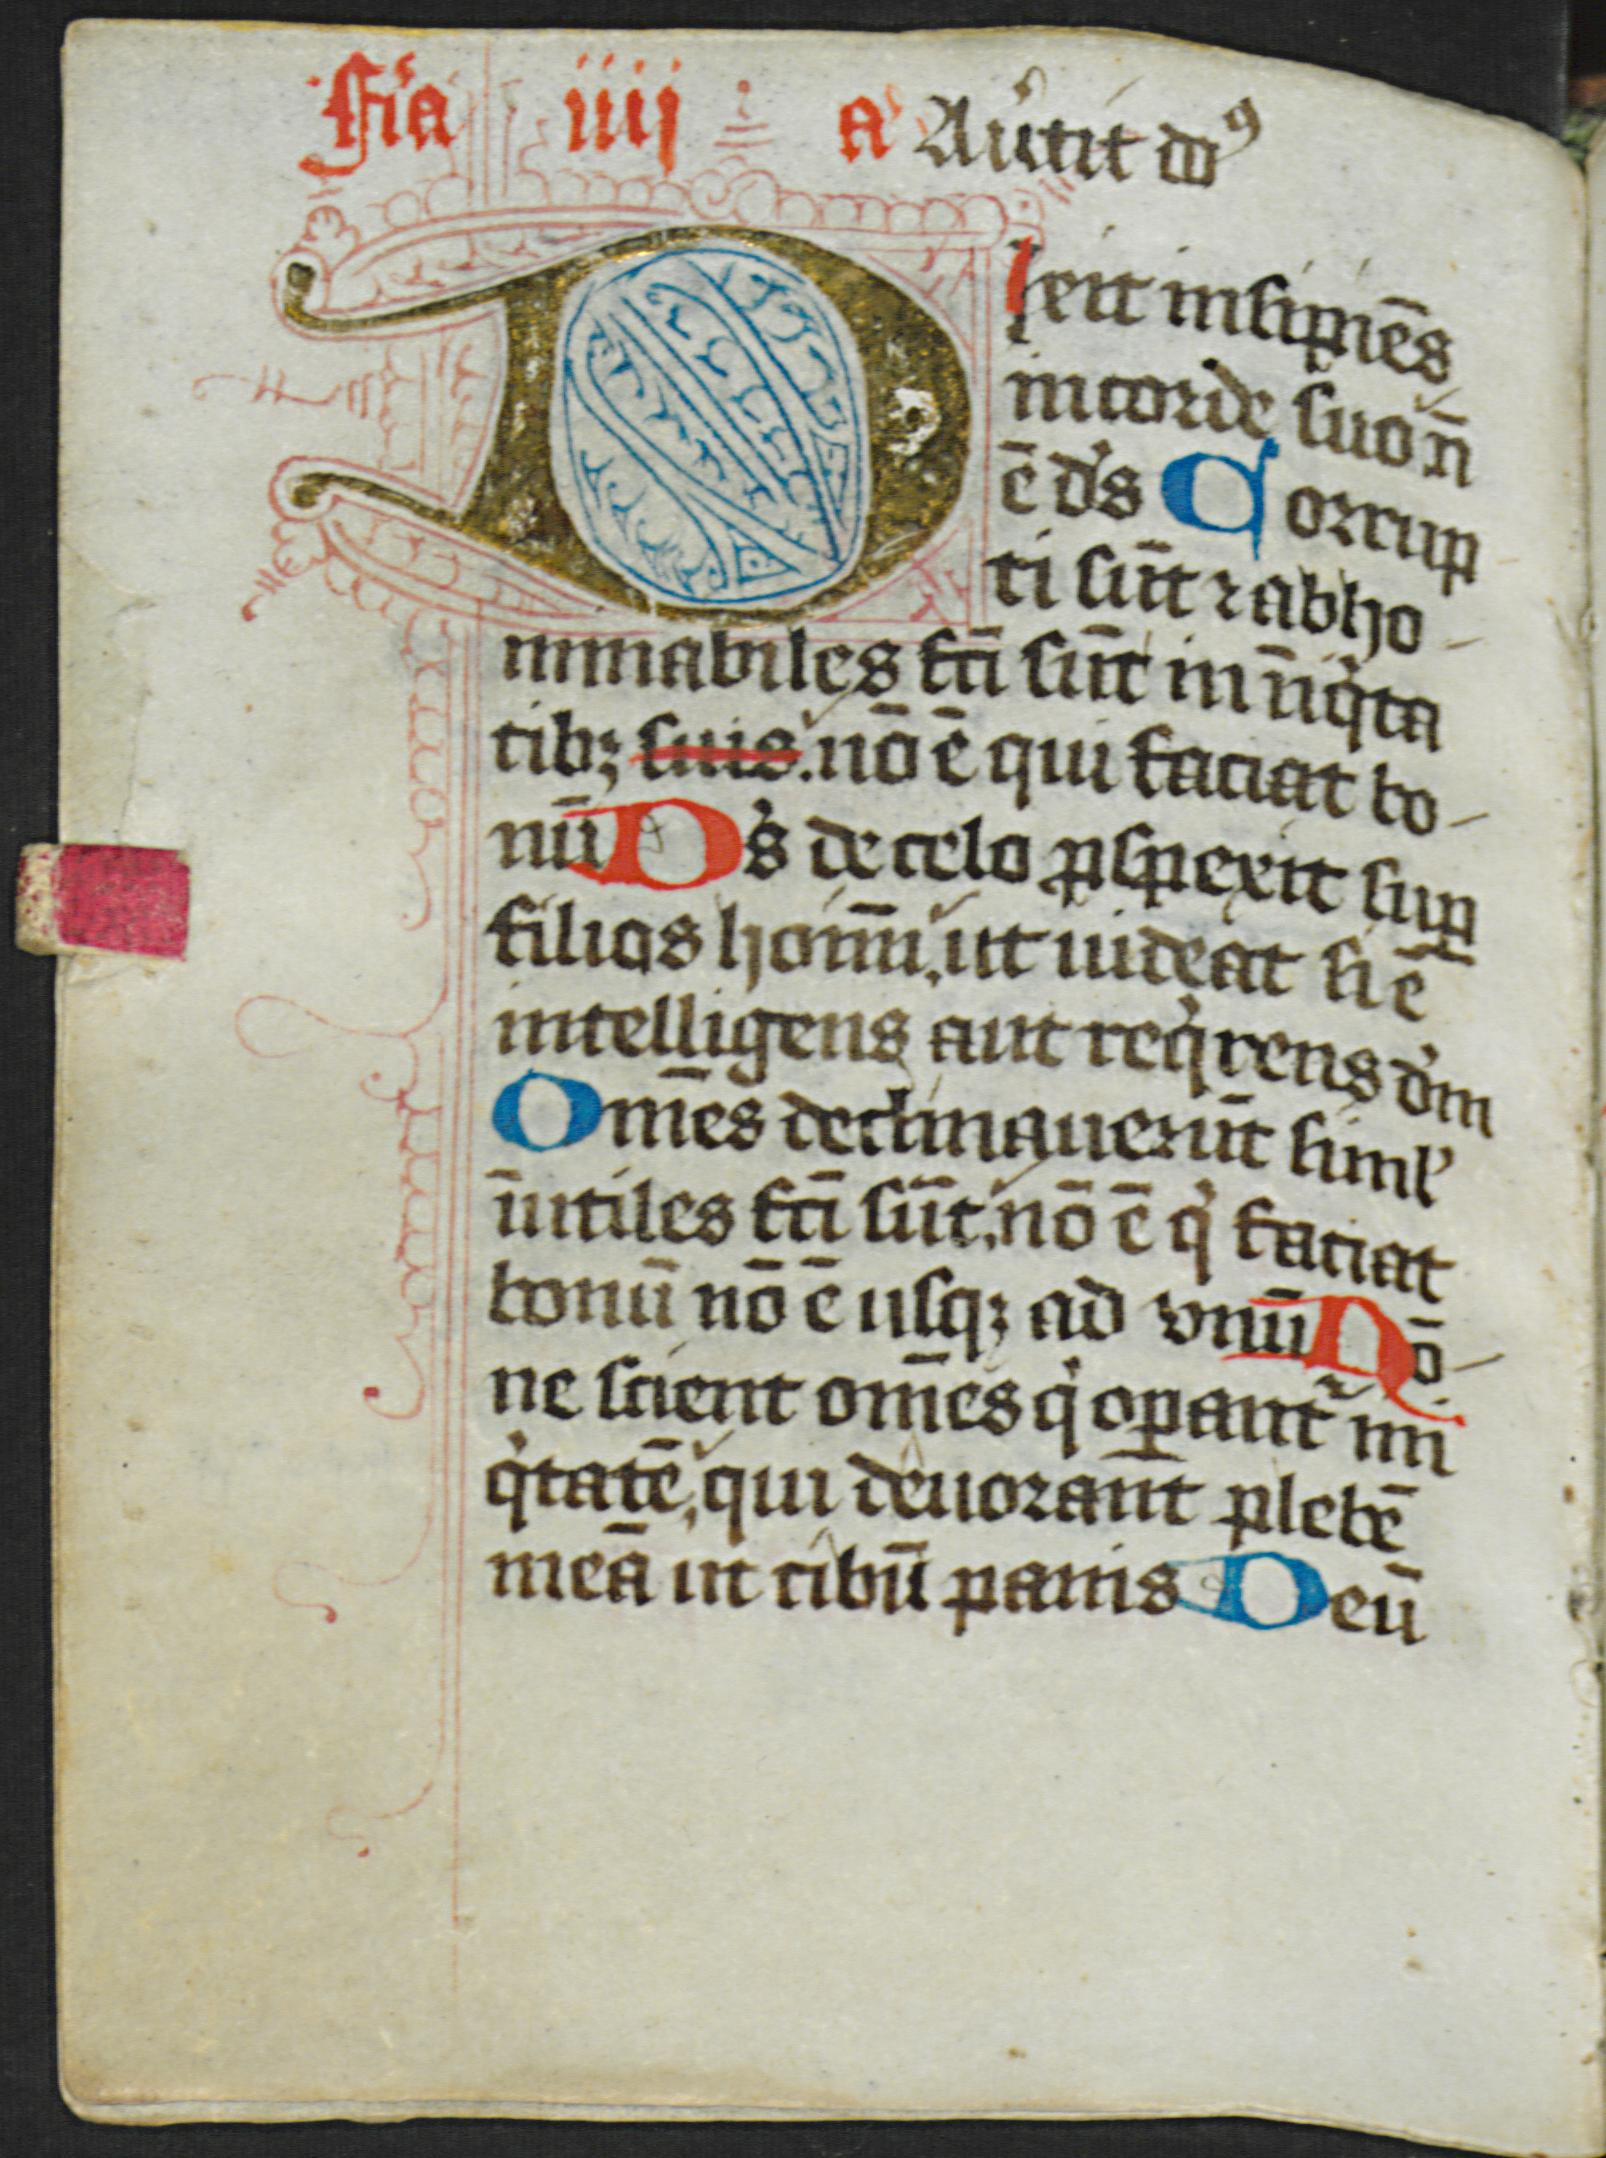 Fia iiij a Aūtit dn⁹
Ixit insipiēs
in corde suo n̄
ē ds Corrup
ti sūt ⁊ abho
minabiles fcī sūt in īiqͥta
tibꝫ suis. nō ē qui faciat bo
nū Ds de celo ꝓspexit suꝑ
filios hoīm, ut uideat si ē
intelligens aut reqͥrens dm
Om̄es declinauerūt siml'
īutiles fcī sūt, nō ē qͥ faciat
bonū nō ē usqꝫ ad vnū Nō
ne scient om̄es qͥ oꝑant᷑ ini
qͥtatē, qui deuorant plebē
meā ut cibū panis Deū